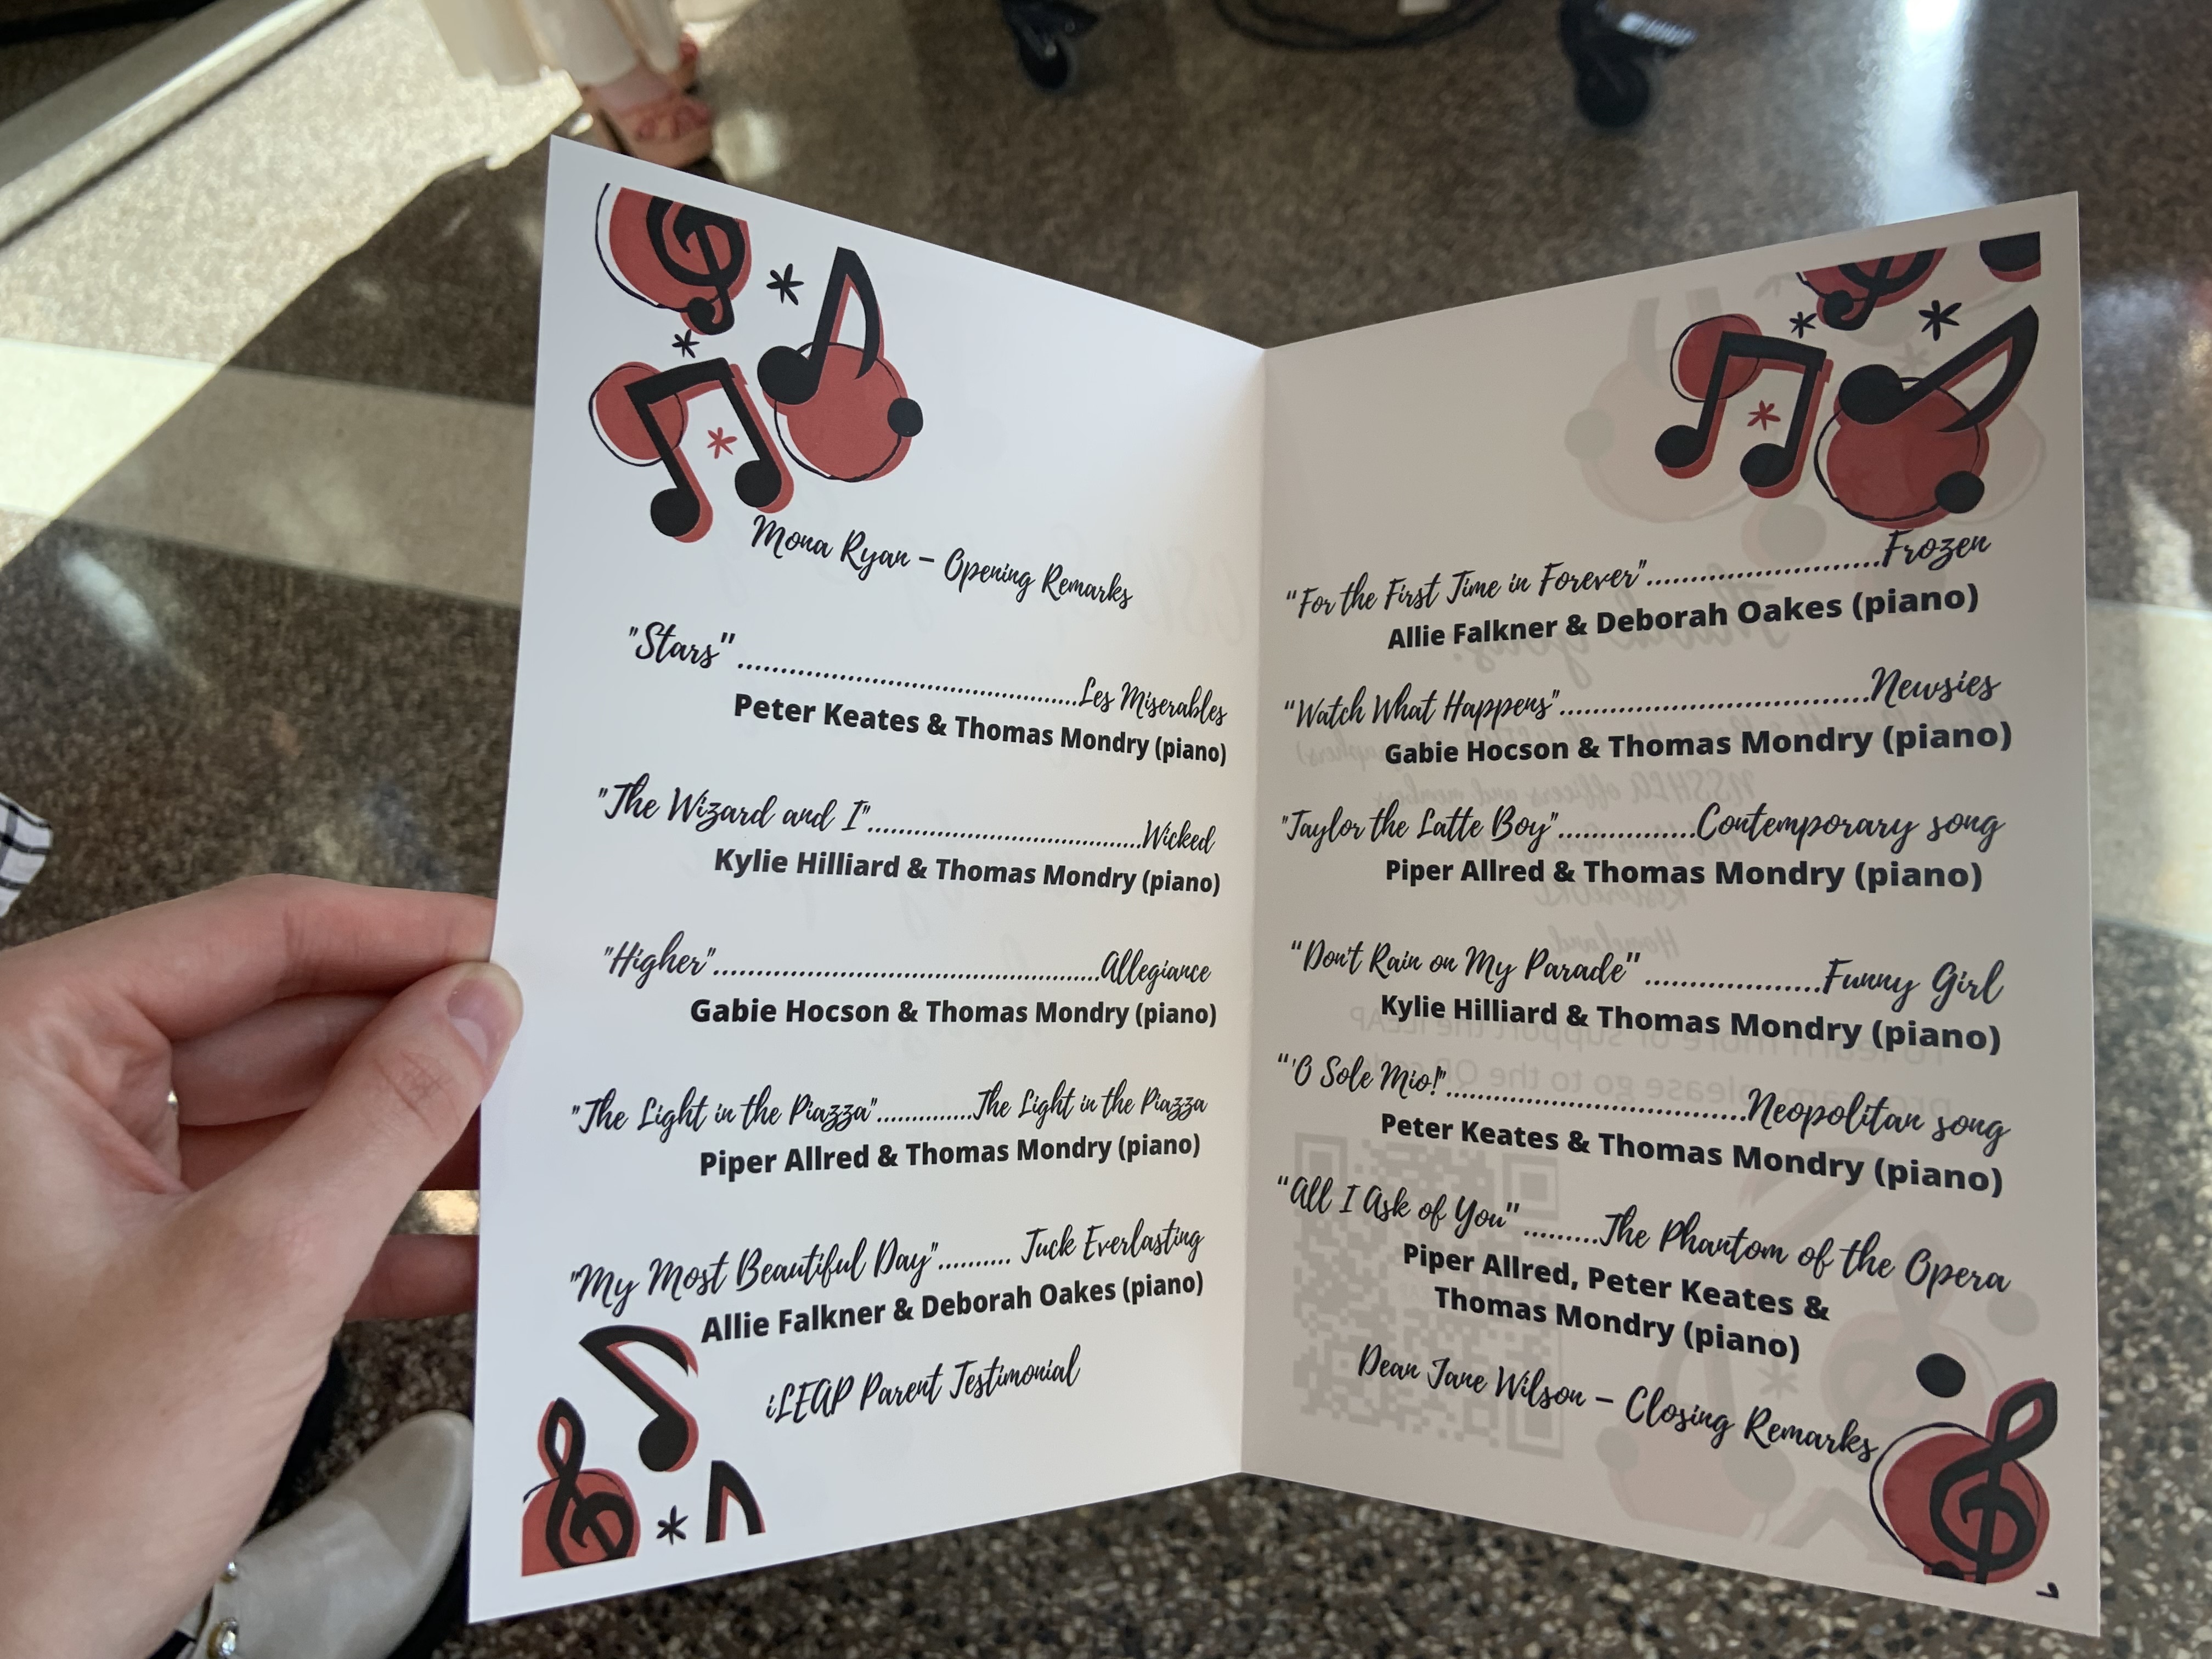 Mona Ryan – Opening Remarks
"Stars"........................................Les Miserables
Peter Keates & Thomas Mondry (piano)
"The Wizard and I"..................................Wicked
Kylie Hilliard & Thomas Mondry (piano)
"Higher"..............................................Allegiance
Gabie Hocson & Thomas Mondry (piano)
"The Light in the Piazza"..............The Light in the Piazza
Piper Allred & Thomas Mondry (piano)
"My Most Beautiful Day".......... Tuck Everlasting
Allie Falkner & Deborah Oakes (piano)
iLEAP Parent Testimonial
“For the First Time in Forever"..........................Frozen
Allie Falkner & Deborah Oakes (piano)
“Watch What Happens"..................................Newsies
Gabie Hocson & Thomas Mondry (piano)
"Taylor the Latte Boy"...............Contemporary song
Piper Allred & Thomas Mondry (piano)
“Don't Rain on My Parade"...................Funny Girl
Kylie Hilliard & Thomas Mondry (piano)
“'O Sole Mio!"................................Neopolitan song
Peter Keates & Thomas Mondry (piano)
“All I Ask of You".........The Phantom of the Opera
Piper Allred, Peter Keates &
Thomas Mondry (piano)
Dean Jane Wilson – Closing Remarks